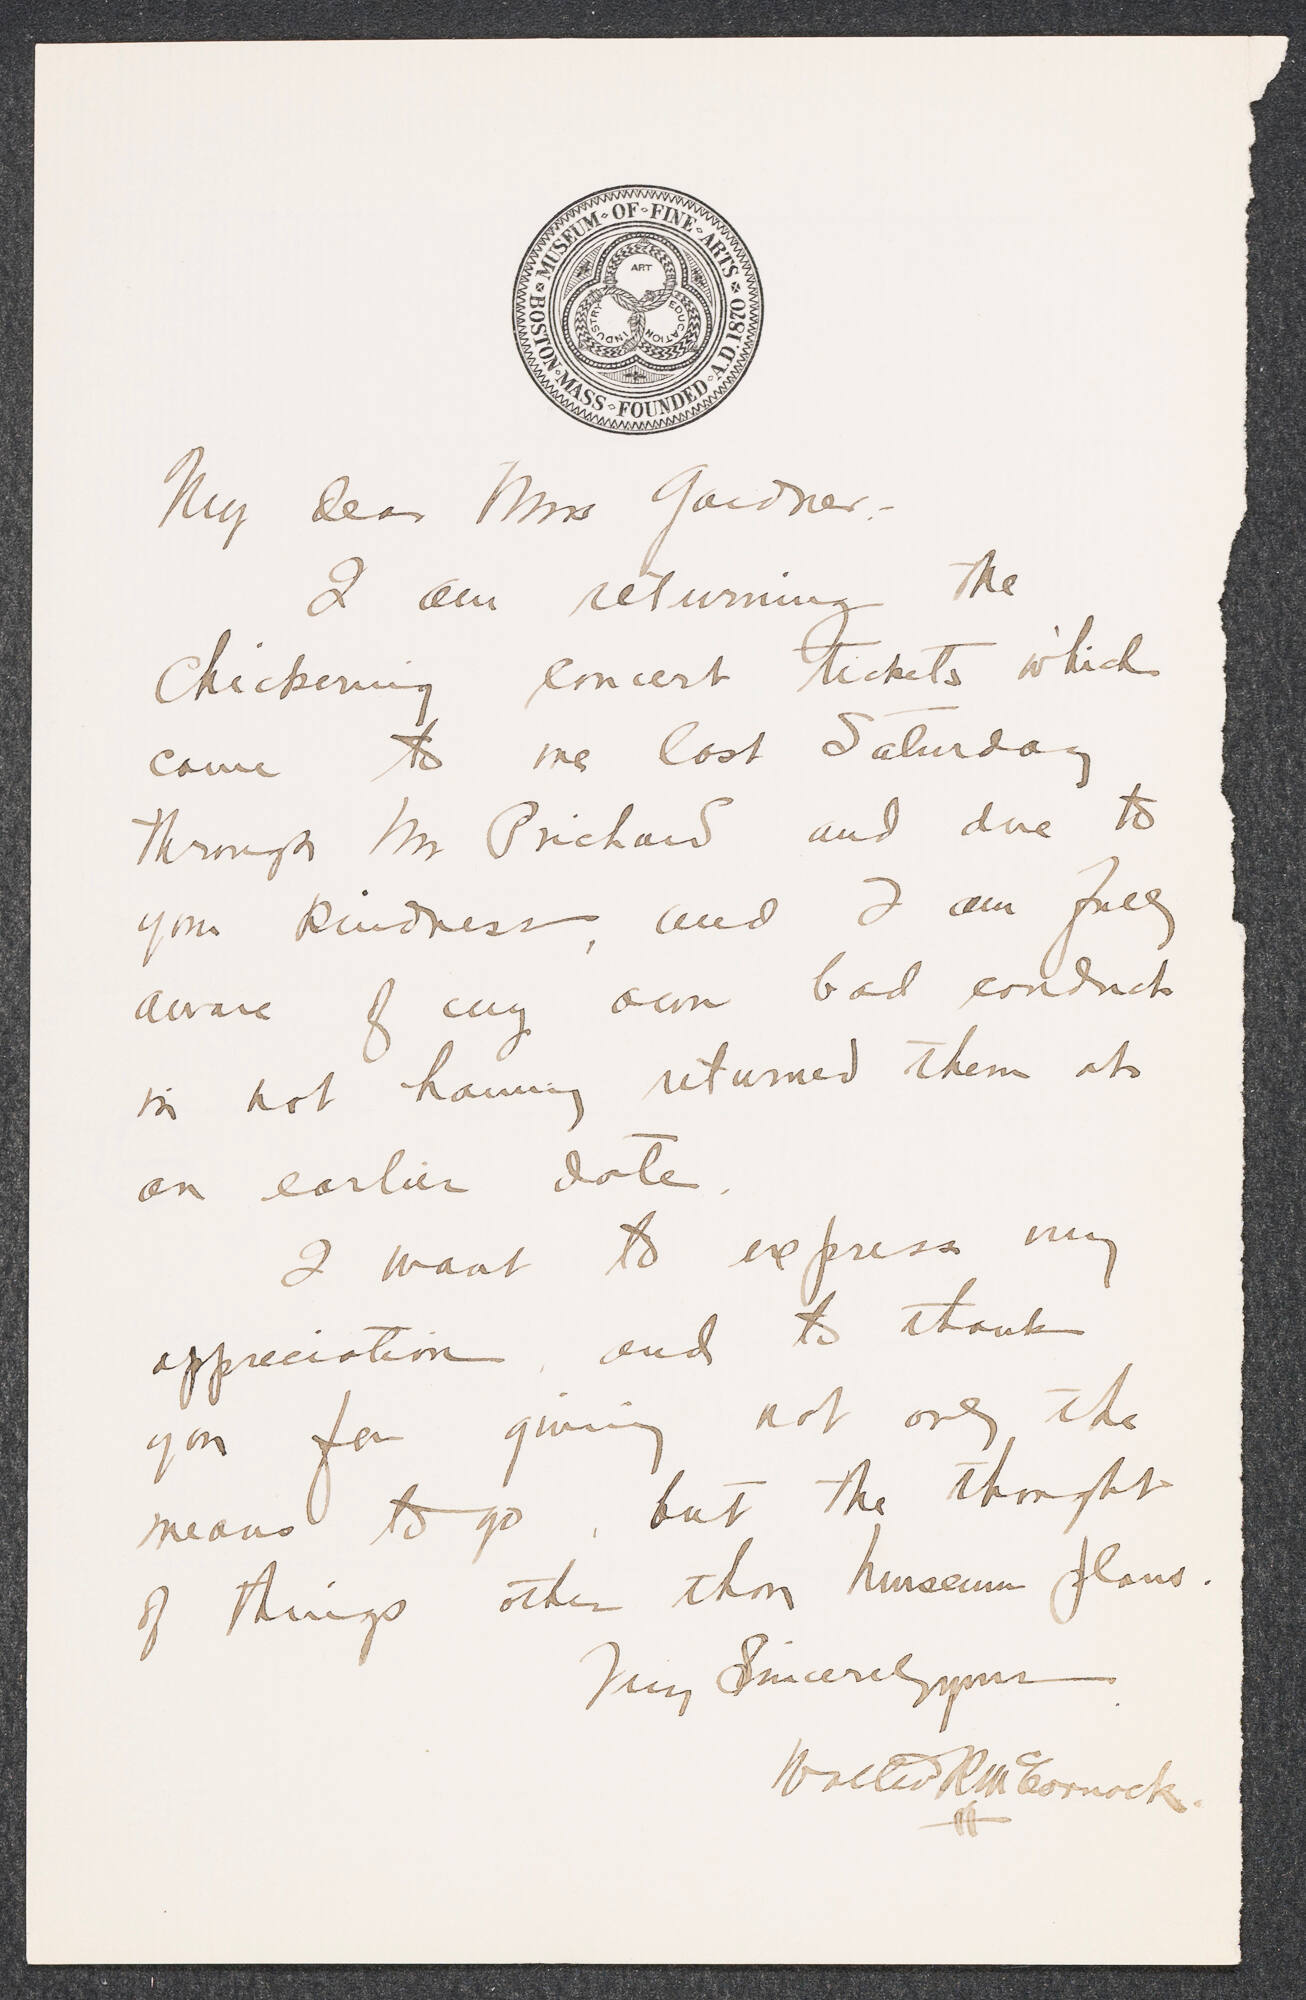 MUSEUM OF FINE ARTS
BOSTON MASS FOUNDED A.D. 1870
ART
INDUSTRY
EDUCATION
My dear Mrs Gardner.-
I am returning the
Chickering concert tickets which
came to me last Saturday
through Mr Prichard and due to
your kindness, and I am fully
aware of my own bad conduct
in not having returned them at
an earlier date.
I want to express my
appreciation, and to thank
you for giving not only the
means to go, but the thought
of things other than Museum plans.
Very Sincerely yours
Walter R McCornack.